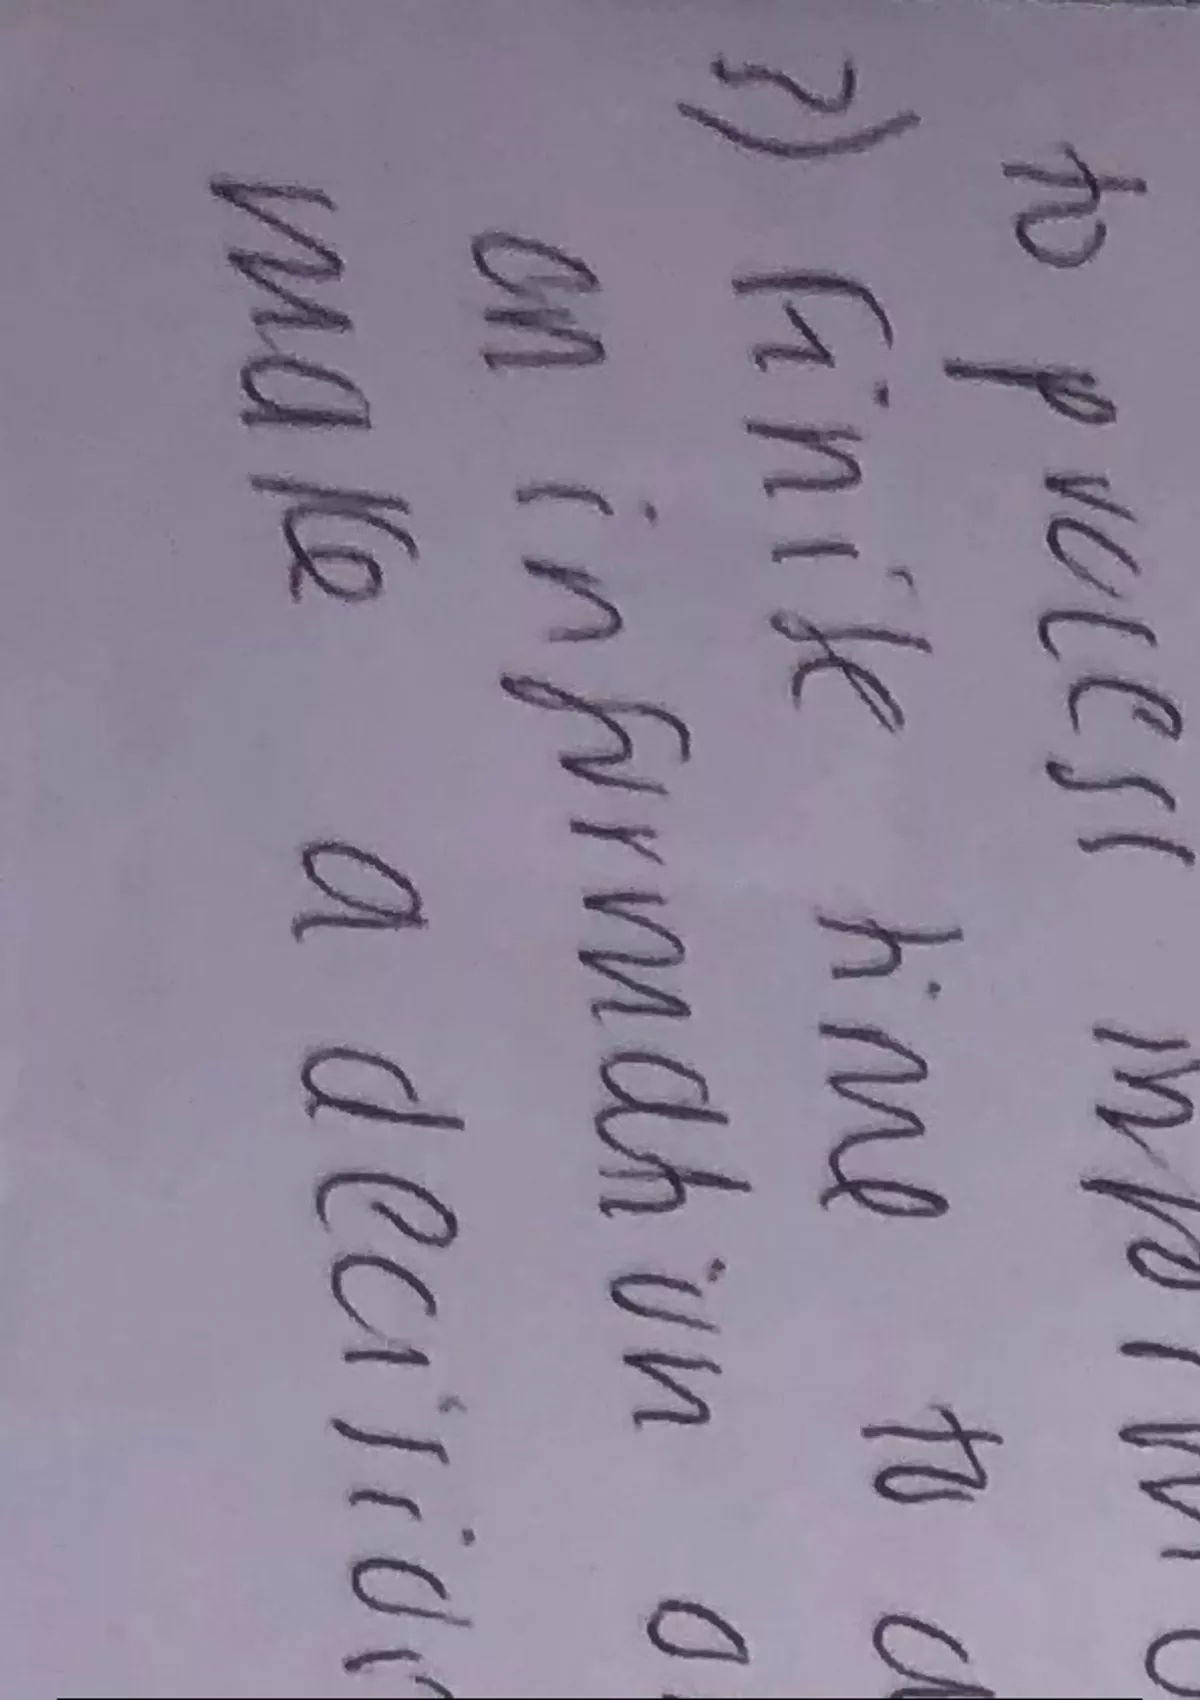 to process informa
2) finite time to a
an information o
make a decision